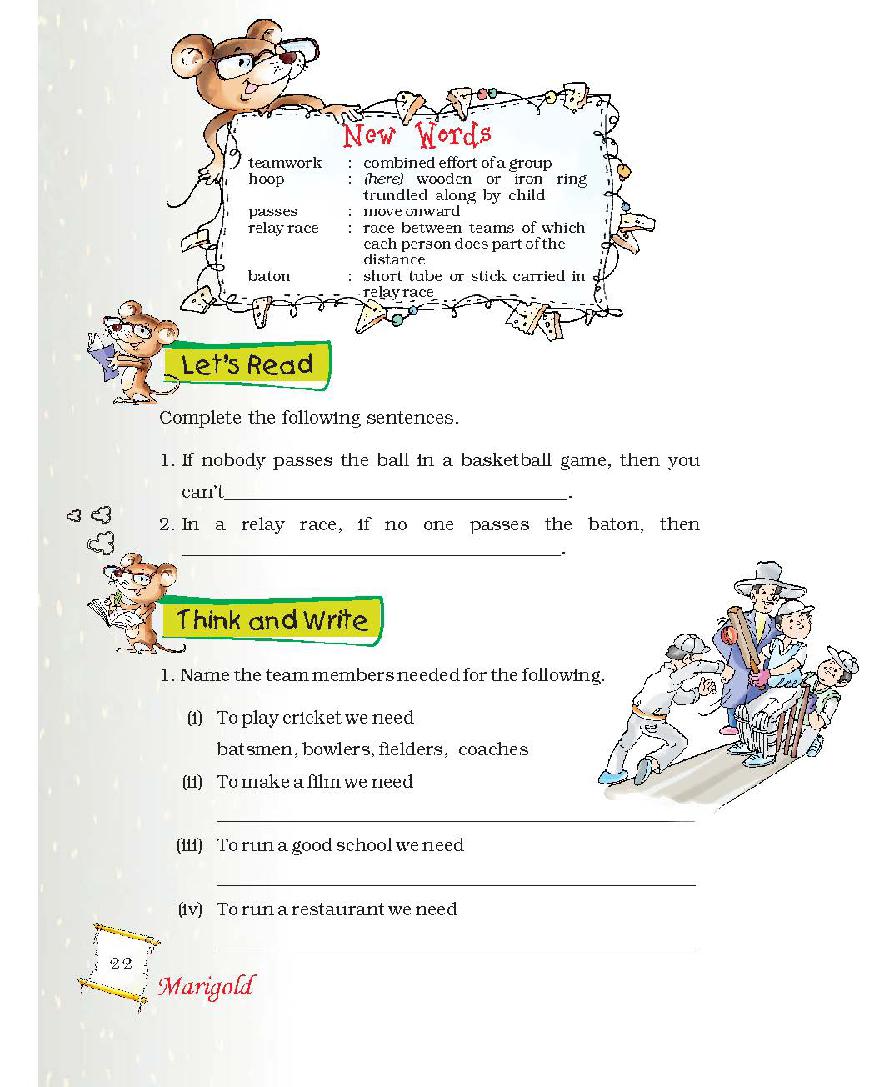 New Words
teamwork : combined effort of a group
hoop : (here) wooden or iron ring
trundled along by child
passes : move onward
relay race : race between teams of which
each person does part of the
distance
baton : short tube or stick carried in
relay race
Let's Read
Complete the following sentences.
1. If nobody passes the ball in a basketball game, then you
can't____________________.
2. In a relay race, if no one passes the baton, then
____________________.
Think and Write
1. Name the team members needed for the following.
(i) To play cricket we need
batsmen, bowlers, fielders, coaches
(ii) To make a film we need
(iii) To run a good school we need
(iv) To run a restaurant we need
22
Marigold